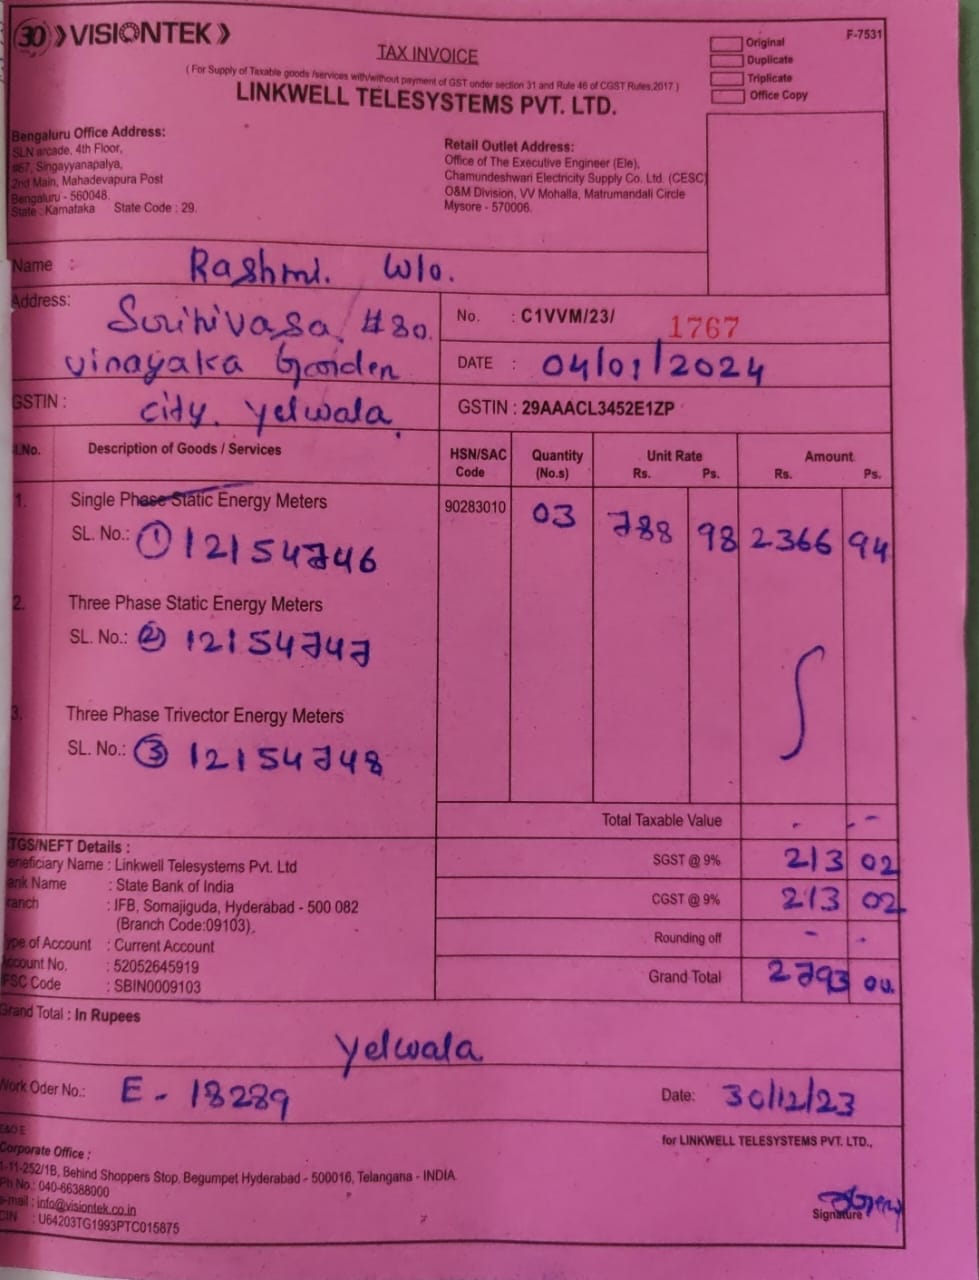 30 VISIONTEK
F-7531
TAX INVOICE
Original
Duplicate
Triplicate
Office Copy
( For Supply of Taxable goods /services with/without payment of GST under section 31 and Rule 46 of CGST Rules,2017 )
LINKWELL TELESYSTEMS PVT. LTD.
Bengaluru Office Address:
SLN arcade, 4th Floor,
#67, Singayyanapalya,
2nd Main, Mahadevapura Post
Bengaluru - 560048.
State : Karnataka State Code : 29.
Retail Outlet Address:
Office of The Executive Engineer (Ele),
Chamundeshwari Electricity Supply Co. Ltd. (CESC)
O&M Division, VV Mohalla, Matrumandali Circle
Mysore - 570006.
Name : Rashmi. W/o.
Address: Srinivasa, #80.
vinayaka Garden
city. Yelwala.
GSTIN :
No. : C1VVM/23/ 1767
DATE : 04/01/2024
GSTIN : 29AAACL3452E1ZP
l.No. Description of Goods / Services HSN/SAC Code Quantity (No.s) Unit Rate Rs. Ps. Amount Rs. Ps.
1. Single Phase Static Energy Meters 90283010 03 788 98 2366 94
SL. No.: ① 12154746
2. Three Phase Static Energy Meters
SL. No.: ② 12154747
3. Three Phase Trivector Energy Meters
SL. No.: ③ 12154748
Total Taxable Value - --
SGST @ 9% 213 02
CGST @ 9% 213 02
Rounding off - .
Grand Total 2793 00.
TGS/NEFT Details :
eneficiary Name : Linkwell Telesystems Pvt. Ltd
ank Name : State Bank of India
ranch : IFB, Somajiguda, Hyderabad - 500 082
(Branch Code:09103).
ype of Account : Current Account
ccount No. : 52052645919
FSC Code : SBIN0009103
Grand Total : In Rupees
Yelwala
Work Oder No.: E - 18289 Date: 30/12/23
E&O E
for LINKWELL TELESYSTEMS PVT. LTD.,
Corporate Office :
1-11-252/1B, Behind Shoppers Stop, Begumpet Hyderabad - 500016, Telangana - INDIA
Ph No.: 040-66388000
e-mail : info@visiontek.co.in
CIN : U64203TG1993PTC015875
Signature